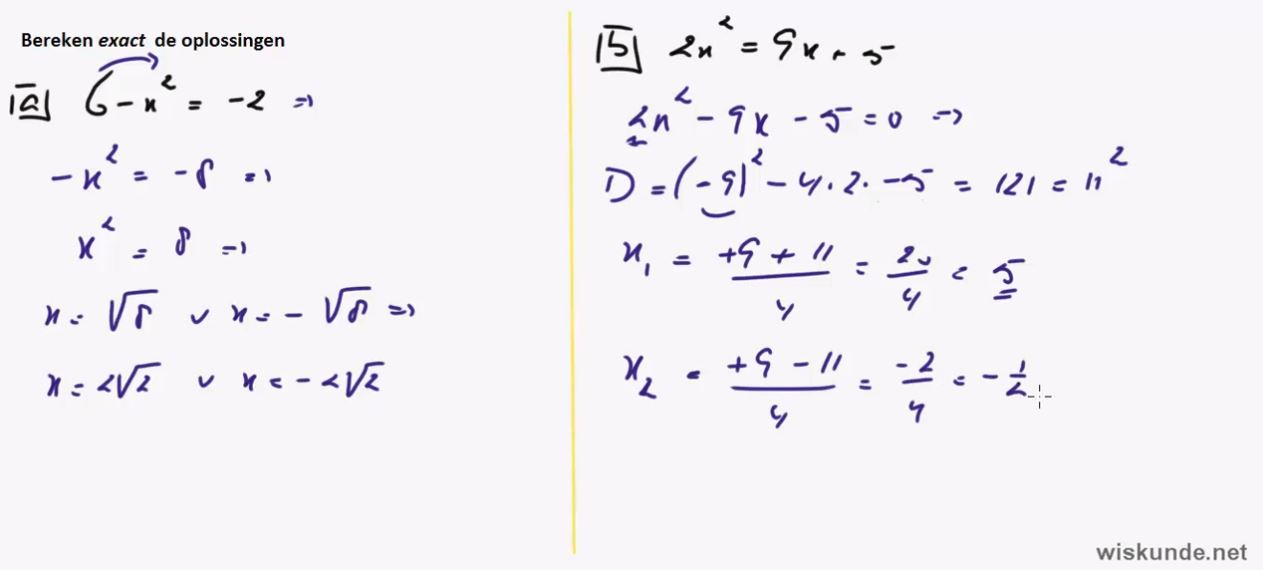 Bereken exact de oplossingen
a 6 - x² = -2 ⇒
-x² = -8 ⇒
x² = 8 ⇒
x = √8 ∨ x = -√8 ⇒
x = 2√2 ∨ x = -2√2
b 2x² = 9x + 5
2x² - 9x - 5 = 0 ⇒
D = (-9)² - 4·2·-5 = 121 = 11²
x₁ = (+9 + 11)/4 = 20/4 = 5
x₂ = (+9 - 11)/4 = -2/4 = -1/2
wiskunde.net